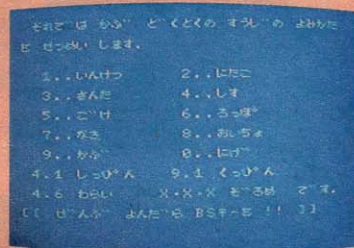 それで゛は かぶ ど くとくの すうし゛の よみかた
ヒ せつめい します.
1..いんけつ 2..にたこ
3..さんた 4..しす
5..ご゛け 6..ろっぽ゜
7..なき 8..おいちょ
9..かぶ 0..にげ
4.1 しっぴ゜ん 9.1 くっぴ゜ん
4.6 わらい X・X・X ぞ゛ろめ で゛す.
[[ ぜんぶ よんだ゛ら BSキーを !! ]]